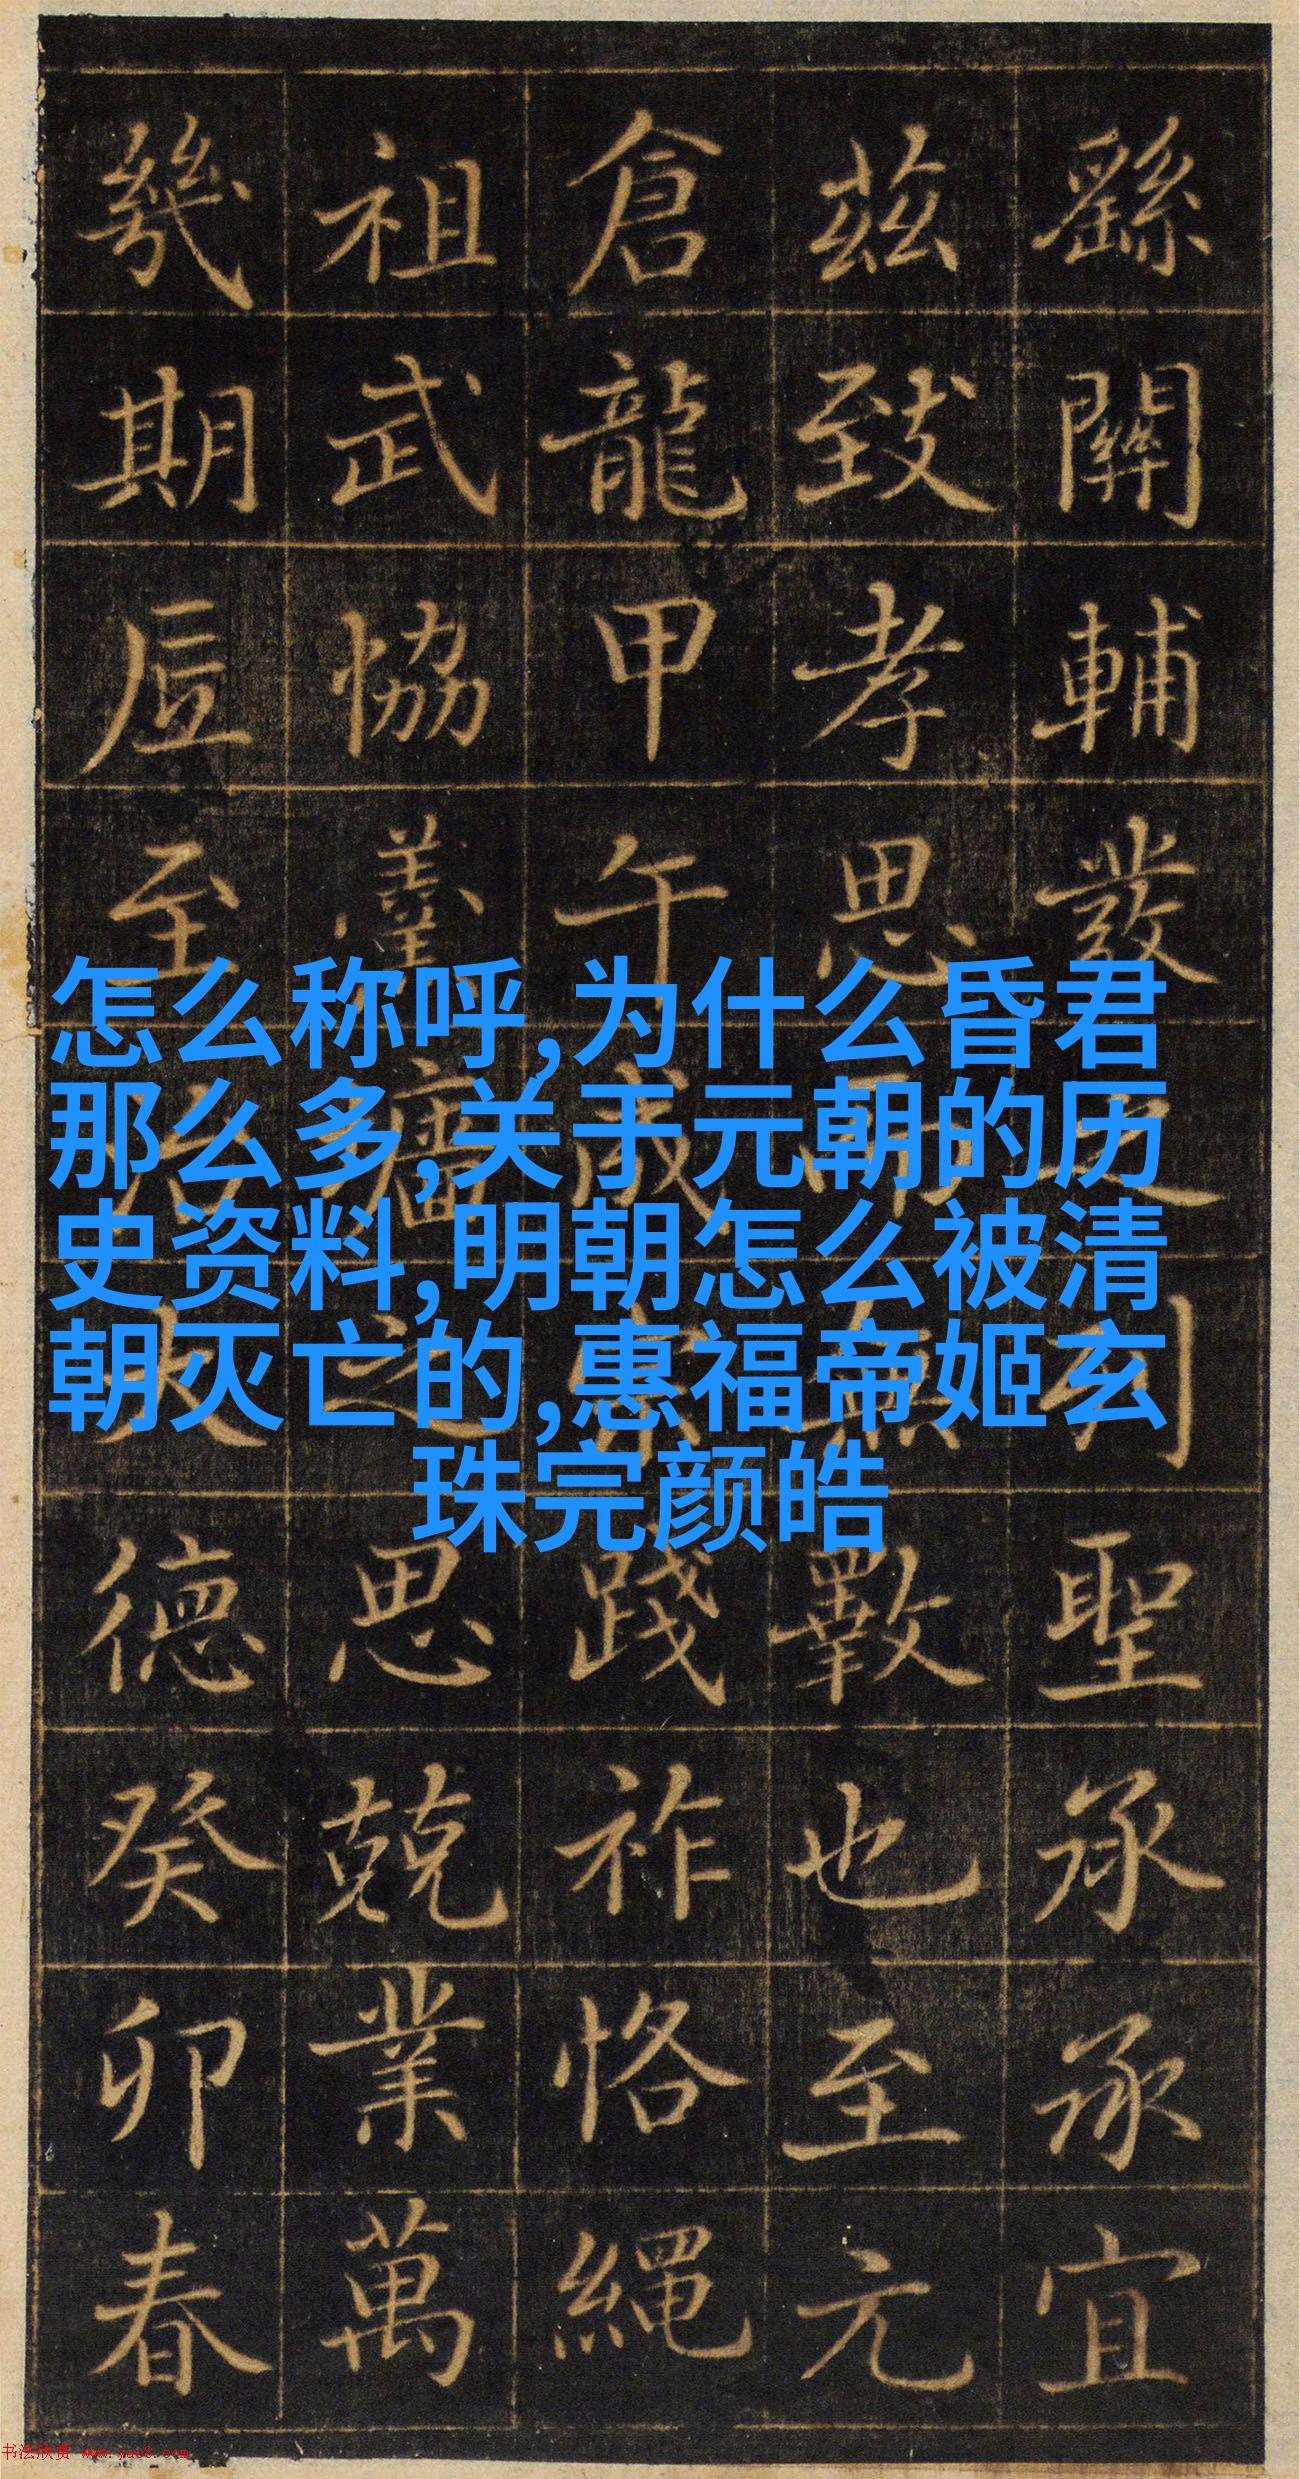 繇關輔列聖承承宜
茲致孝思而無斁也至元
倉龍甲午成宗踐祚恪繩
祖武協羹牆之思兢業萬
幾期底至治大德癸卯春
怎么称呼,为什么昏君
那么多,关于元朝的历
史资料,明朝怎么被清
朝灭亡的,惠福帝姬玄
珠完颜皓
书法欣赏 www.yac8.com